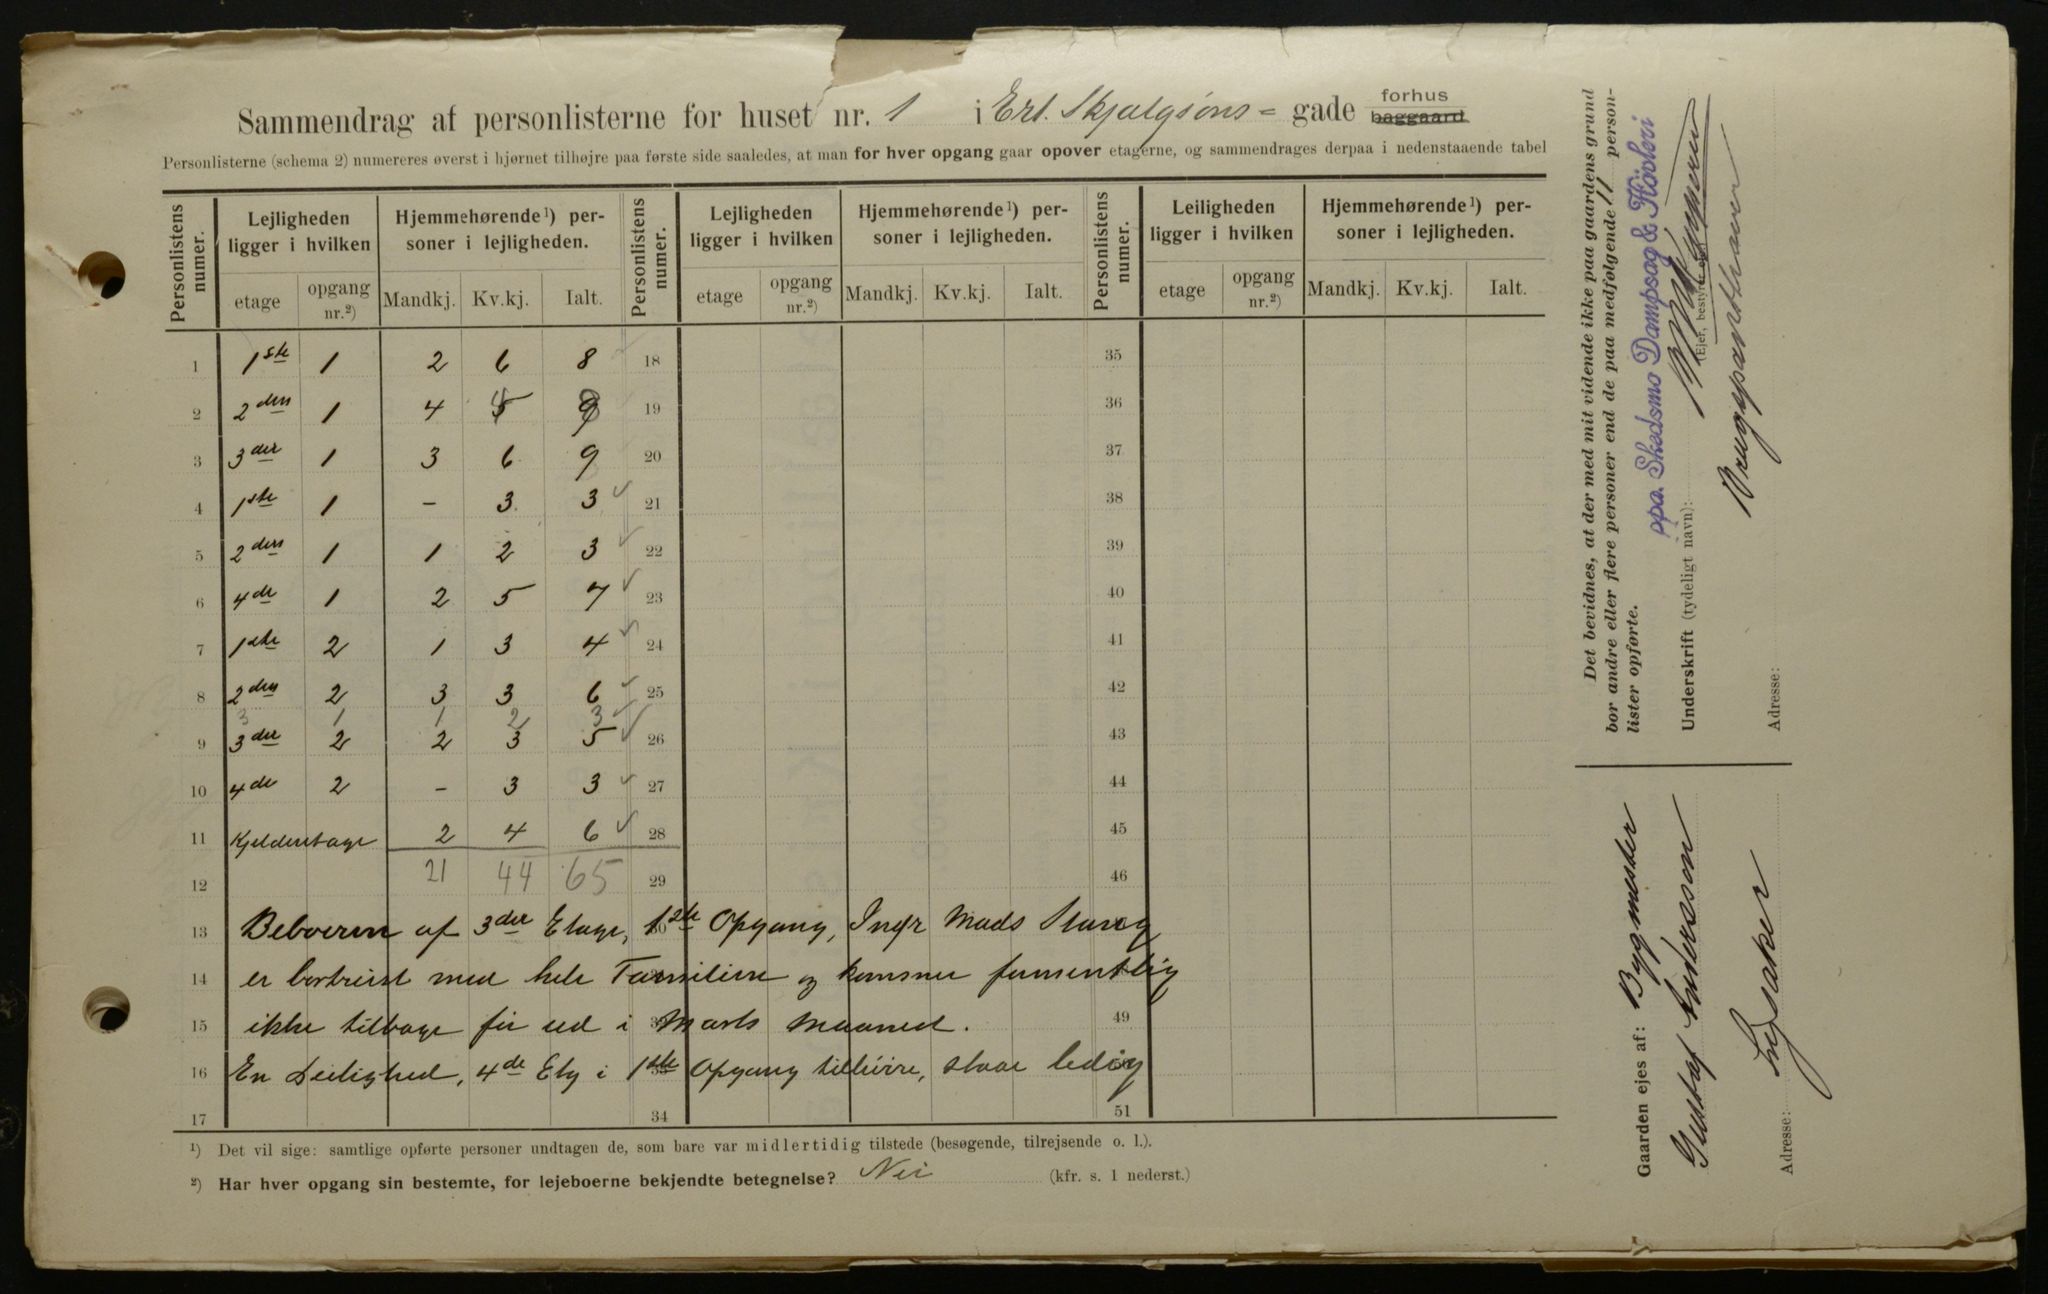 Sammendrag af personlisterne for huset nr. 1 i Erl. Skjalgsøns = gade forhus baggaard
Personlisterne (schema 2) numereres øverst i hjørnet tilhøjre paa første side saaledes, at man for hver opgang gaar opover etagerne, og sammendrages derpaa i nedenstaaende tabel
Personlistens numer. Lejligheden ligger i hvilken Hjemmehørende¹) personer i lejligheden. Personlistens numer. Lejligheden ligger i hvilken Hjemmehørende¹) personer i lejligheden. Personlistens numer. Leiligheden ligger i hvilken Hjemmehørende¹) personer i lejligheden.
etage opgang nr.²) Mandkj. Kv.kj. Ialt. etage opgang nr.²) Mandkj. Kv.kj. Ialt. etage opgang nr.²) Mandkj. Kv.kj. Ialt.
1 1ste 1 2 6 8 18 35
2 2den 1 4 4 8 19 36
3 3die 1 3 6 9 20 37
4 1ste 1 - 3 3 21 38
5 2den 1 1 2 3 22 39
6 4de 1 2 5 7 23 40
7 1ste 2 1 3 4 24 41
8 2den 2 3 3 6 25 42
3 1 1 2 3
9 3die 2 2 3 5 26 43
10 4de 2 - 3 3 27 44
11 Kjelderetage 2 4 6 28 45
12 21 44 65 29 46
13 Beboeren af 3die Etage, 1ste Opgang, Ingr Mads
14 er bortreist med hele Familien og kommer formentlig
15 ikke tilbage før ud i Marts Maaned. 49
16 En Leilighed, 4de Etg i 1ste Opgang tilhøire, staar ledig
17 34 51
¹) Det vil sige: samtlige opførte personer undtagen de, som bare var midlertidig tilstede (besøgende, tilrejsende o. l.).
²) Har hver opgang sin bestemte, for lejeboerne bekjendte betegnelse? Nei (kfr. s. 1 nederst.)
Det bevidnes, at der med mit vidende ikke paa gaardens grund
bor andre eller flere personer end de paa medfølgende 11 person-
lister opførte.
ppa. Skedsmo Dampsag & Høvleri
Underskrift (tydeligt navn):
(Ejer, bestyrer
Brugspanthaver
Adresse:
Gaarden ejes af: Bygmester
Gustaf Andersson
Adresse: Lysaker